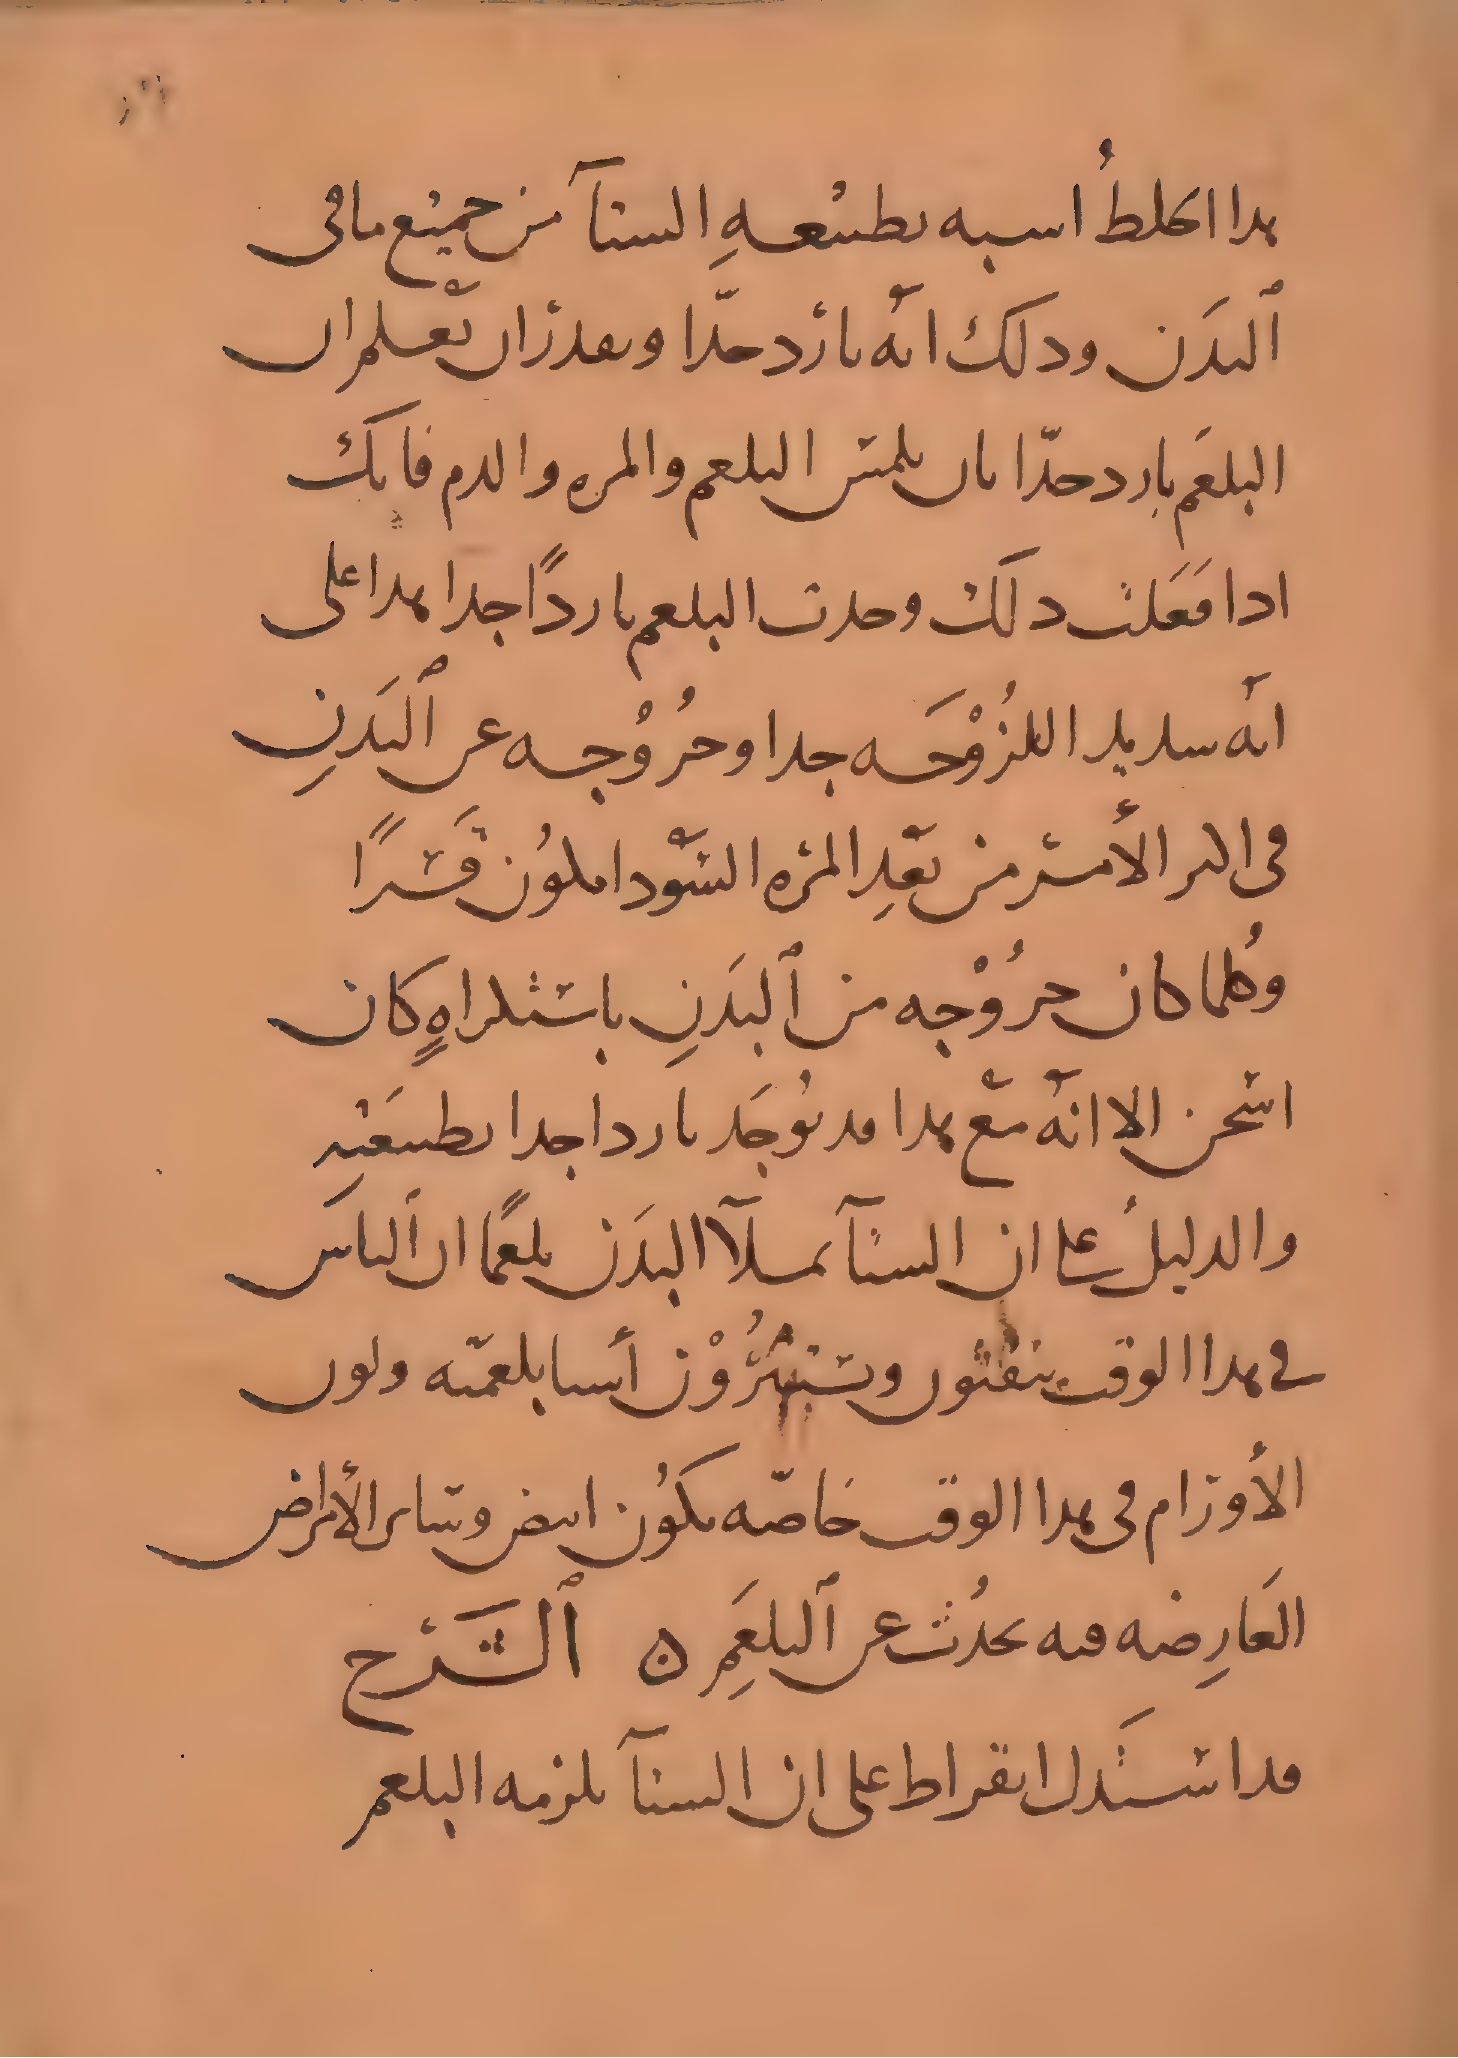 هذا الخلطُ أشبه بطبيعهِ الشتآ من جميع ما في
ٱلبدَن وذلك انّه بارد جدّا وتقدر ان تعّلم ان
البلغَم بارد جدّا بان تلمس البلغم والمره والدم فانك
اذا فعَلت ذلك وجدت البلغم باردًا جدا هذا على
انّه شديد اللزُوْجَه جدا وخرُوْجه عن ٱلبَدنِ
في اكثر الأمر من بعّدِ المره السّودا يكوُن قَسْرًا
وكُلما كان خرُوْجه من ٱلبدَنِ باستكراهٍ كان
اسخن الا انّه معّ هذا قد يوُجَد باردا جدا بطبيعَتهِ
والدليلُ على ان الشتآ يملآ البدَن بلغمًا ان ٱلناسَ
في هذا الوقت ينفثون ويستنثرُوْن أشيا بلغميّه ولون
الأورام في هذا الوقت خاصّه يكوُن ابيض وسائر الأمراض
العَارِضه فيه تحدُث عن ٱلبلغَمِ ٥ ٱلشَرح
قد استَدل ابقراط على ان الشتآ يلزمه البلغم